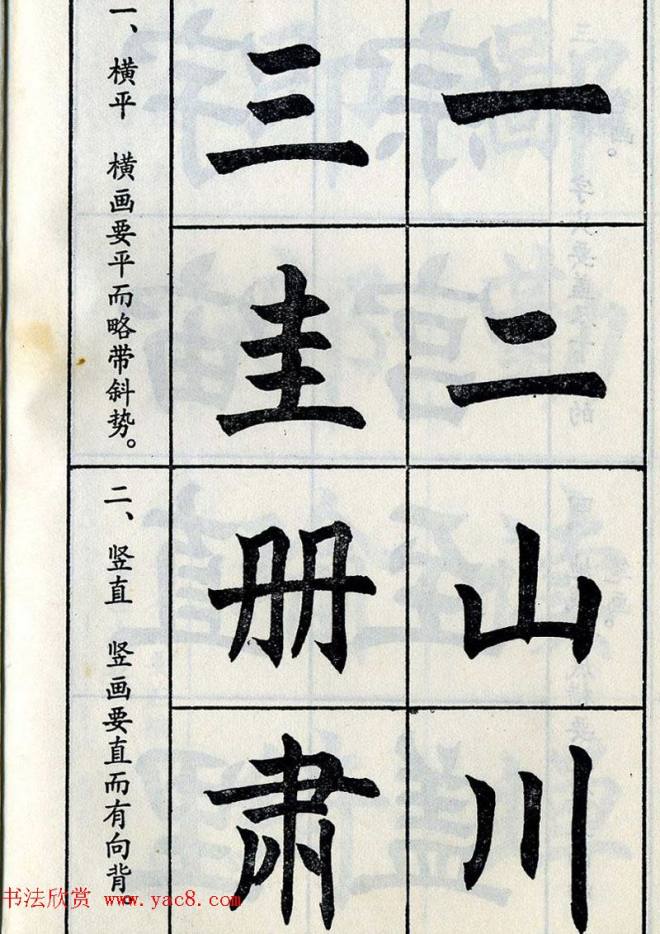 一、横平　横画要平而略带斜势。
一
二
三
圭
二、竖直　竖画要直而有向背。
山
川
册
肃
书法欣赏 www.yac8.com